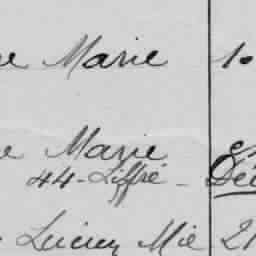 Marie 10
Marie 8
44-Liffré - Déc
Lucien Mie 21